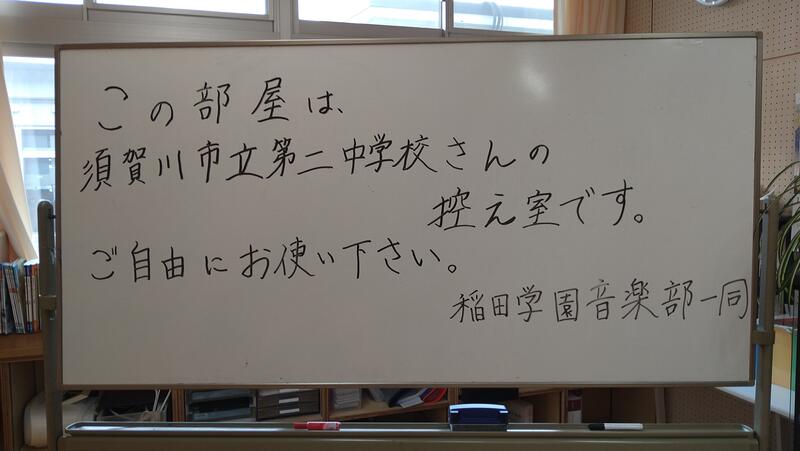 この部屋は、
須賀川市立第二中学校さんの
控え室です。
ご自由にお使い下さい。
稲田学園音楽部一同